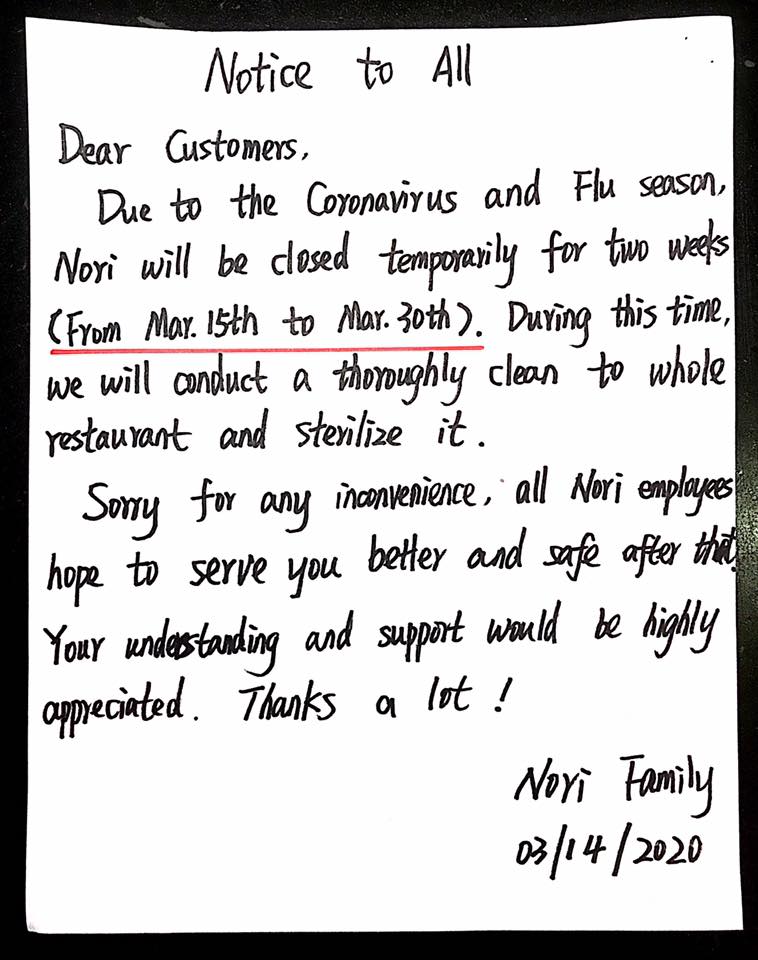 Notice to All
Dear Customers,
Due to the Coronavirus and Flu season,
Nori will be closed temporarily for two weeks
(From Mar. 15th to Mar. 30th). During this time,
we will conduct a thoroughly clean to whole
restaurant and sterilize it.
Sorry for any inconvenience, all Nori employees
hope to serve you better and safe after that.
Your understanding and support would be highly
appreciated. Thanks a lot!
Nori Family
03/14/2020